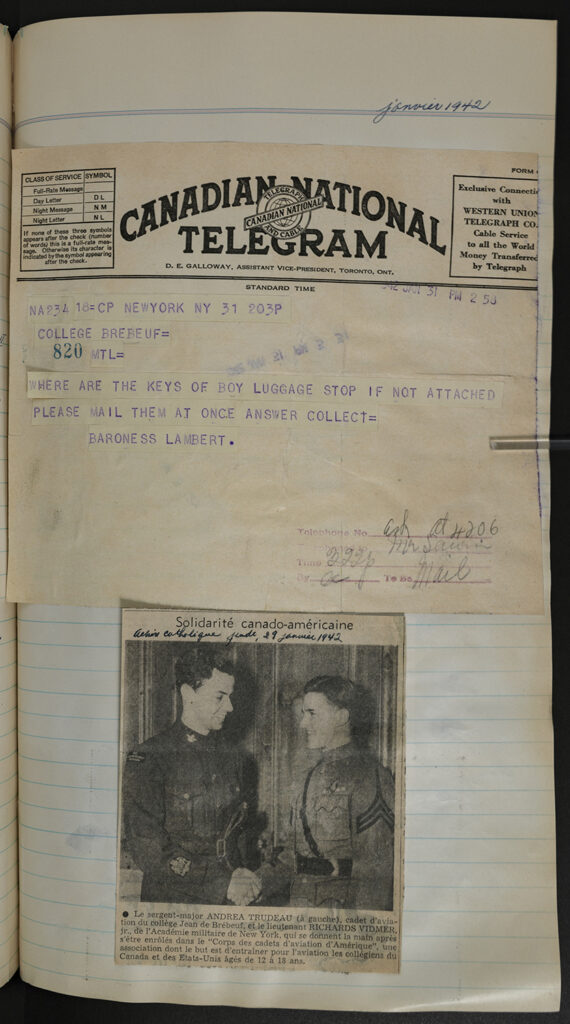 janvier 1942
CLASS OF SERVICE SYMBOL
Full-Rate Message
Day Letter D L
Night Message N M
Night Letter N L
If none of these three symbols
appears after the check (number
of words) this is a full-rate mes-
sage. Otherwise its character is
indicated by the symbol appearing
after the check.
CANADIAN NATIONAL
TELEGRAM
CANADIAN NATIONAL
TELEGRAPH
AND CABLE
D. E. GALLOWAY, ASSISTANT VICE-PRESIDENT, TORONTO, ONT.
FORM
Exclusive Connecti
with
WESTERN UNION
TELEGRAPH CO.
Cable Service
to all the World
Money Transferred
by Telegraph
STANDARD TIME
31 PM 2 58
NA234 18=CP NEWYORK NY 31 203P
COLLEGE BREBEUF=
820 MTL=
WHERE ARE THE KEYS OF BOY LUGGAGE STOP IF NOT ATTACHED
PLEASE MAIL THEM AT ONCE ANSWER COLLECT=
BARONESS LAMBERT.
Telephone No. at 4206
Mr
Time
By To be Mail
Solidarité canado-américaine
Action catholique jeudi, 29 janvier 1942
● Le sergent-major ANDREA TRUDEAU (à gauche), cadet d'avia-
tion du collège Jean de Brébeuf, et le lieutenant RICHARDS VIDMER,
jr., de l'Académie militaire de New York, qui se donnent la main après
s'être enrôlés dans le "Corps des cadets d'aviation d'Amérique", une
association dont le but est d'entraîner pour l'aviation les collégiens du
Canada et des Etats-Unis âgés de 12 à 18 ans.